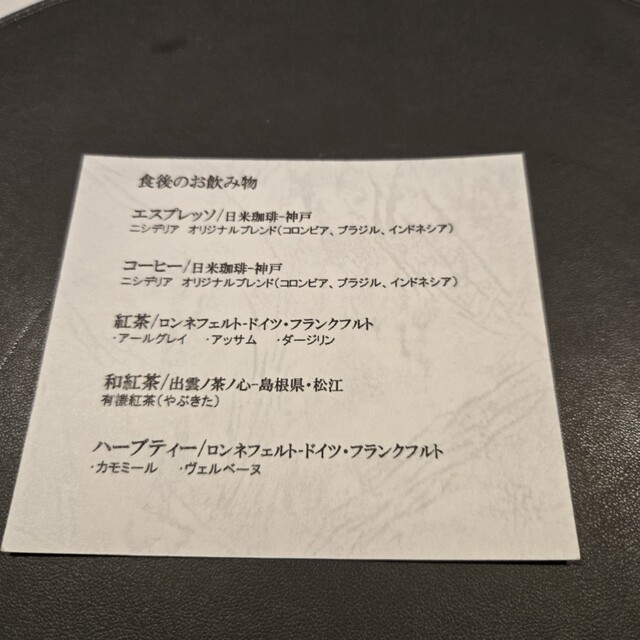 食後のお飲み物
エスプレッソ/日米珈琲-神戸
ニシデリア オリジナルブレンド(コロンビア、ブラジル、インドネシア)
コーヒー/日米珈琲-神戸
ニシデリア オリジナルブレンド(コロンビア、ブラジル、インドネシア)
紅茶/ロンネフェルト-ドイツ・フランクフルト
・アールグレイ ・アッサム ・ダージリン
和紅茶/出雲ノ茶ノ心-島根県・松江
有漂紅茶(やぶきた)
ハーブティー/ロンネフェルト-ドイツ・フランクフルト
・カモミール ・ヴェルベーヌ